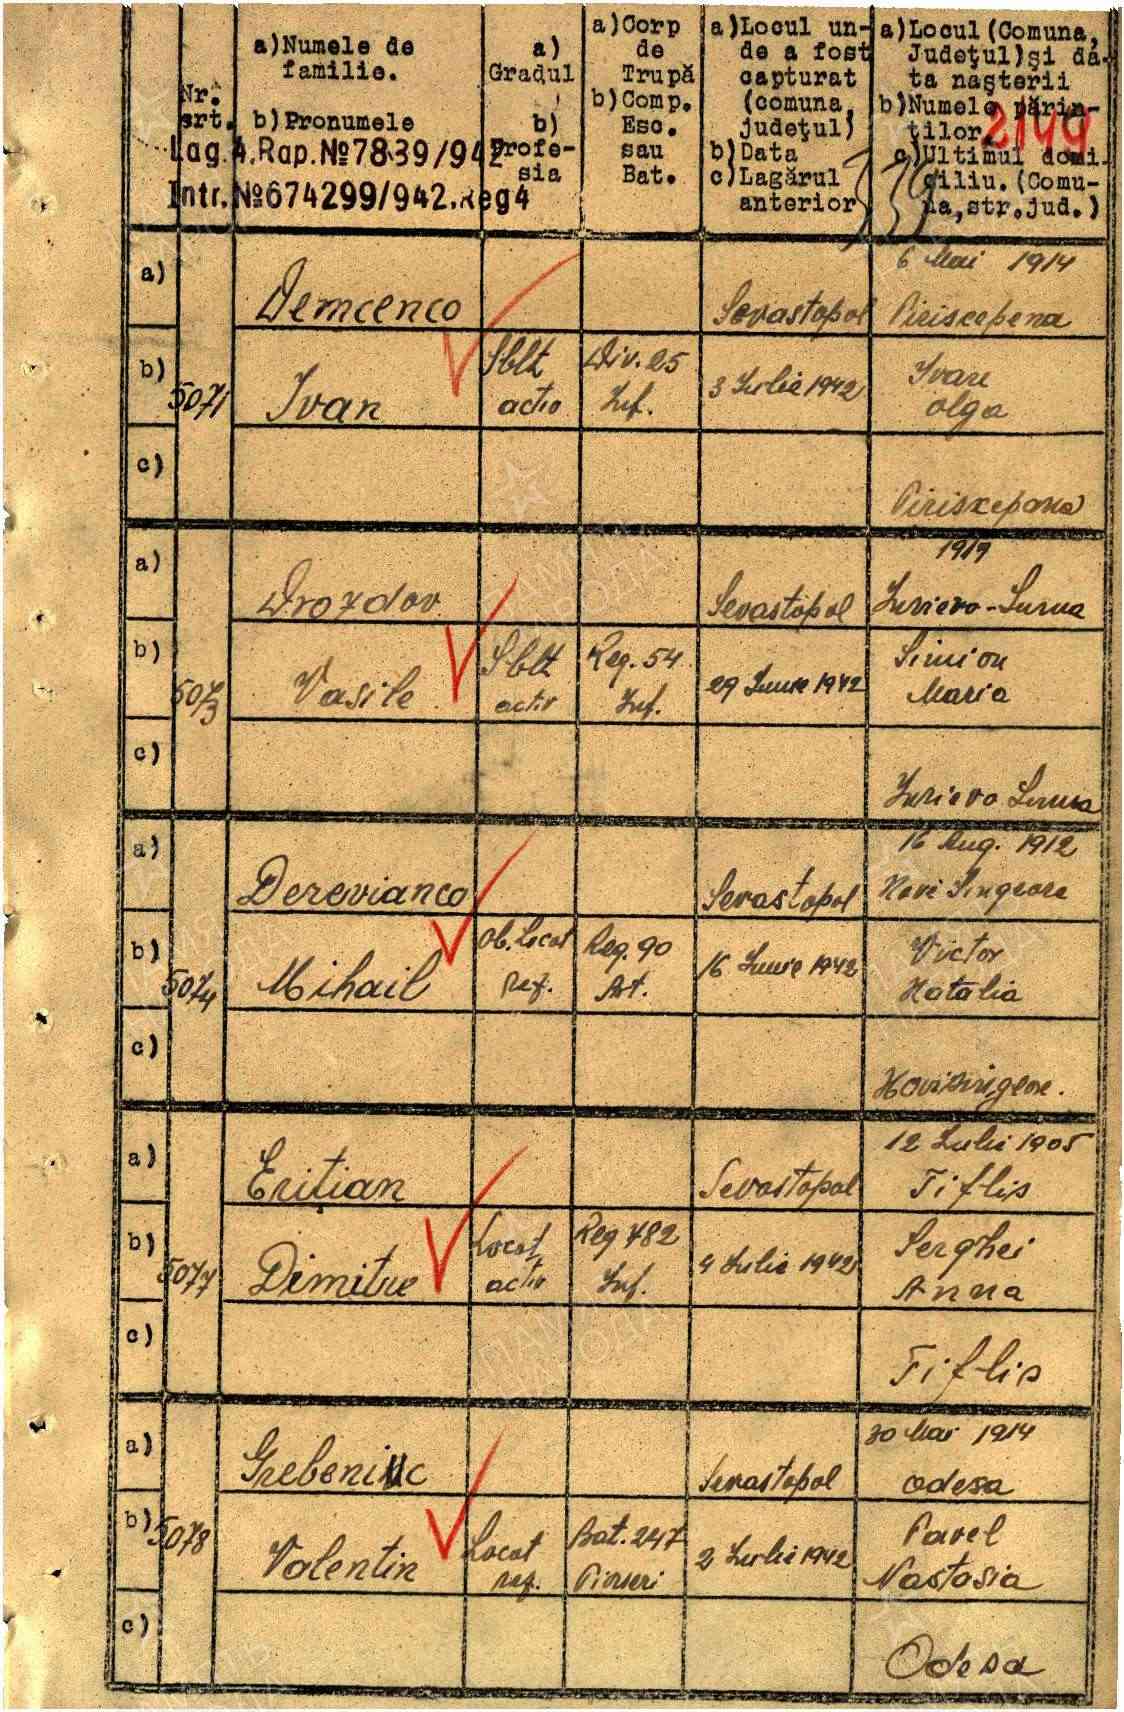 Nr. srt.
a)Numele de familie.
b)Pronumele
a) Gradul
b) Profesia
a)Corp de Trupă
b)Comp. Esc. sau Bat.
a)Locul unde a fost capturat (comuna, judeţul)
b)Data
c)Lagărul anterior
a)Locul(Comuna, Judeţul)şi data naşterii
b)Numele părinţilor
c)Ultimul domiciliu.(Comuna,str.jud.)
2149
Lag.4.Rap.№7839/942
Intr.№674299/942.Reg4
6 Mai 1914
a) Demcenco Sevastopol Piriscepena
b) 5071 Ivan Sblt activ Div. 25 Inf. 3 Iulie 1942 Ivan Olga
c)
1919
a) Drozdov Sevastopol
b) 5073 Vasile Sblt activ Reg. 54 Inf. 29 Iunie 1942 Simion Maria
c)
16 Aug. 1912
a) Derevianco Sevastopol
b) 5074 Mihail Ob. Locot Rez. Reg. 90 Art. 16 Iunie 1942 Victor Natalia
c)
12 Iulie 1905
a) Eriţian Sevastopol Tiflis
b) 5077 Dimitre Locot activ Reg 782 Inf. 4 Iulie 1942 Serghei Anna
c) Tiflis
30 Mai 1914
a) Grebeniuc Sevastopol Odesa
b) 5078 Valentin Locot rez. Bat. 247 Pionieri 2 Iulie 1942 Pavel Nastasia
c) Odesa